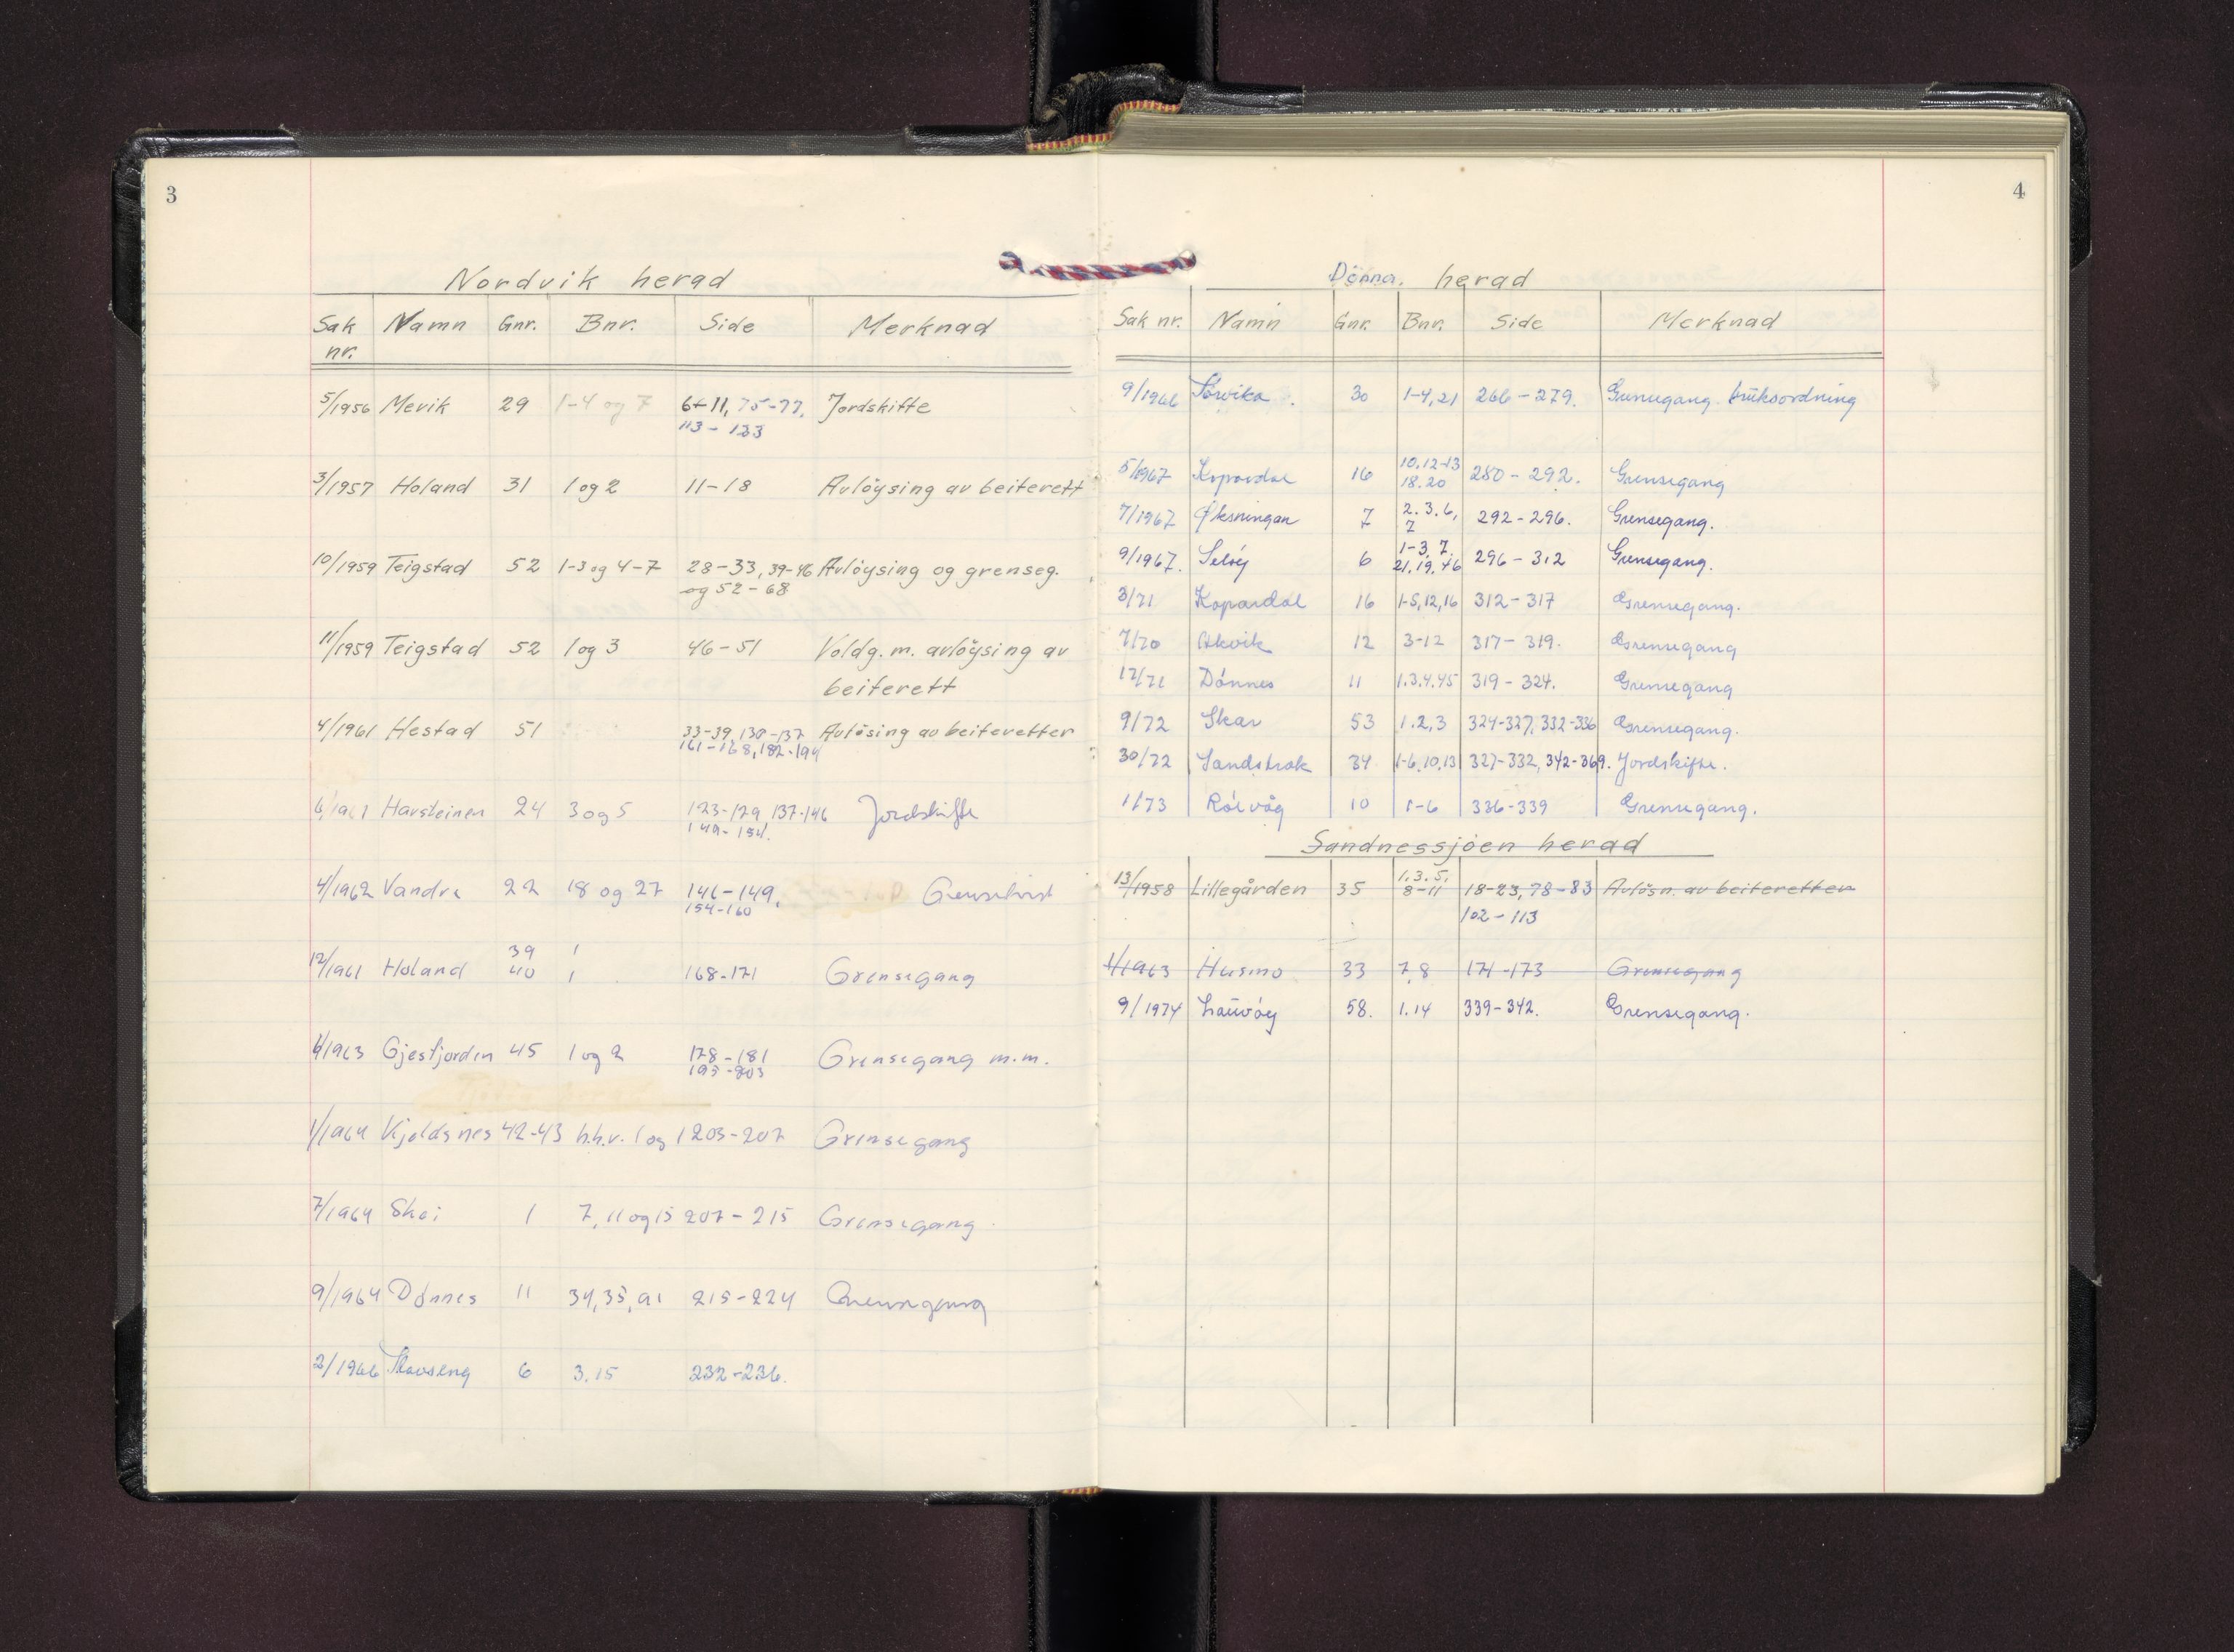 3
Nordvik herad
Sak nr. Namn Gnr. Bnr. Side Merknad
5/1956 Mevik 29 1-4 og 7 6-11, 75-77, Jordskifte
113 - 123
3/1957 Holand 31 1 og 2 11-18 Avløysing av beiterett
10/1959 Teigstad 52 1-3 og 4-7 28-33, 39-46 Avløysing og grenseg.
og 52-68
11/1959 Teigstad 52 1 og 3 46-51 Voldg. m. avløysing av
beiterett
4/1961 Hestad 51 33-39, 130-137 Avløsing av beiteretter
161-168, 182-194
6/1961 Havsteinen 24 3 og 5 123-129, 137-146 Jordskifte
149-154.
4/1962 Vandve 22 18 og 27 146-149,
154-160
39 1
12/1961 Holand 40 1 168-171 Grensegang
1963 Gjesfjorden 45 1 og 2 178-181 Grensegang m.m.
195-203
1/1964 Kjeldsnes 42-43 h.h.v. 1 og 1 203-207 Grensegang
7/1964 Skei 1 7, 11 og 15 207-215 Grensegang
9/1964 Dønnes 11 34, 35, 91 215-224 Grensegang
2/1966 6 3.15 232-236.
4
Dönna. herad
Sak nr. Namn Gnr. Bnr. Side Merknad
9/1966 Sørvika. 30 1-4, 21 266-279. Grensegang bruksordning
10.12-13
5/1967 Kopardal 16 18.20 280-292. Grensegang
7/1967 Øksningan 7 2.3.6, 292-296. Grensegang.
7
1-3, 7.
9/1967. Seløy 6 21.19.46 296-312 Grensegang.
3/71 Kopardal 16 1-5, 12, 16 312-317 Grensegang.
7/70 Akvik 12 3-12 317-319. Grensegang
12/71 Dønnes 11 1.3.4.45 319-324. Grensegang
9/72 Skar 53 1.2,3 324-327, 332-336 Grensegang.
30/72 Sandstrak 34 1-6, 10, 13 327-332, 342-369. Jordskifte.
1/73 Rølvåg 10 1-6 336-339 Grensegang.
Sandnessjøen herad
1.3.5,
13/1958 Lillegården 35 8-11 18-23, 78-83 Avløsn. av beiteretten
102-113
1/1963 Husmo 33 7,8 171-173 Grensegang
9/1974 Lauvøy 58. 1.14 339-342. Grensegang.